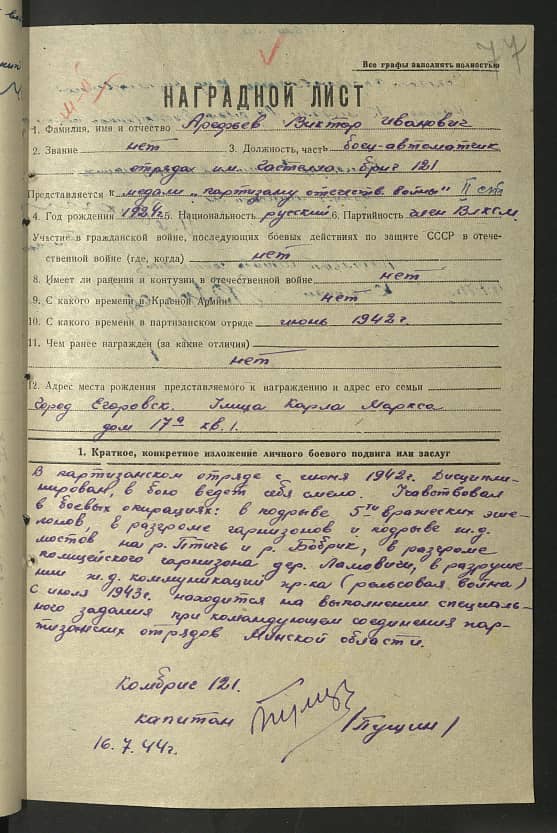 77
Все графы заполнять полностью
НАГРАДНОЙ ЛИСТ
1. Фамилия, имя и отчество Арефьев Виктор Иванович
2. Звание нет 3. Должность, часть боец-автоматчик
отряда им. Гастелло, бриг 121
Представляется к медали "партизану отечеств. войны" II ст
4. Год рождения 1924г. 5. Национальность русский 6. Партийность член Влксм.
Участие в гражданской войне, последующих боевых действиях по защите СССР в отече-
ственной войне (где, когда) нет
8. Имеет ли ранения и контузии в отечественной войне нет
9. С какого времени в Красной Армии нет
10. С какого времени в партизанском отряде июнь 1942г.
11. Чем ранее награжден (за какие отличия)
нет
12. Адрес места рождения представляемого к награждению и адрес его семьи
Город Егоровск. Улица Карла Маркса
дом 17а кв. 1.
1. Краткое, конкретное изложение личного боевого подвига или заслуг
В партизанском отряде с июня 1942г. Дисципли-
нирован, в бою ведет себя смело. Учавствовал
в боевых операциях: в подрыве 5ти вражеских эше-
лонов, в разгроме гарнизонов и подрыве ж.д.
мостов на р. Птичь и р. Бобрик, в разгроме
полицейского гарнизона дер. Ламовичи, в разруше-
нии ж.д. коммуникаций пр-ка (рельсовая война)
С июля 1943г. находится на выполнении специаль-
ного задания при командующем соединения пар-
тизанских отрядов Минской области.
Комбриг 121.
капитан /Пущин/
16.7.44г.